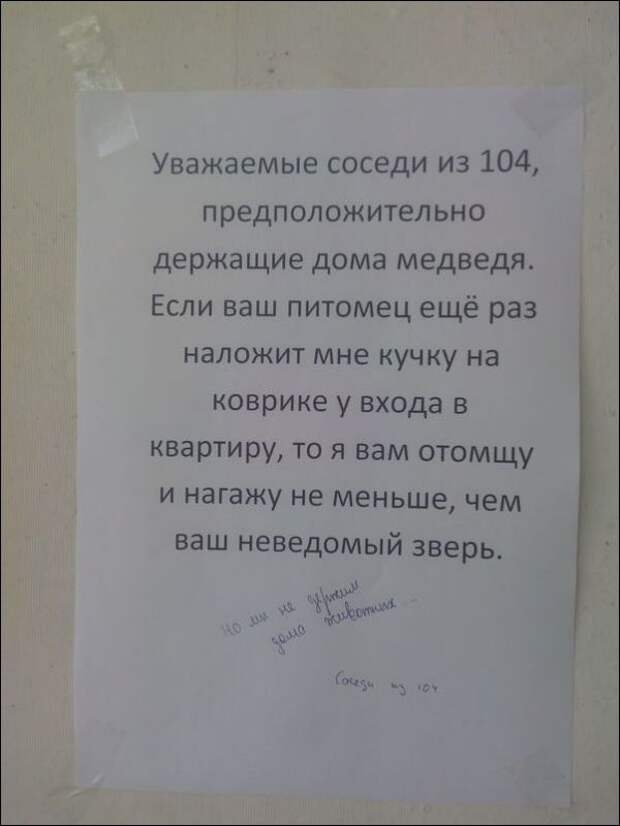 Уважаемые соседи из 104,
предположительно
держащие дома медведя.
Если ваш питомец ещё раз
наложит мне кучку на
коврике у входа в
квартиру, то я вам отомщу
и нагажу не меньше, чем
ваш неведомый зверь.
Но мы не держим
дома животных...
Соседи из 104